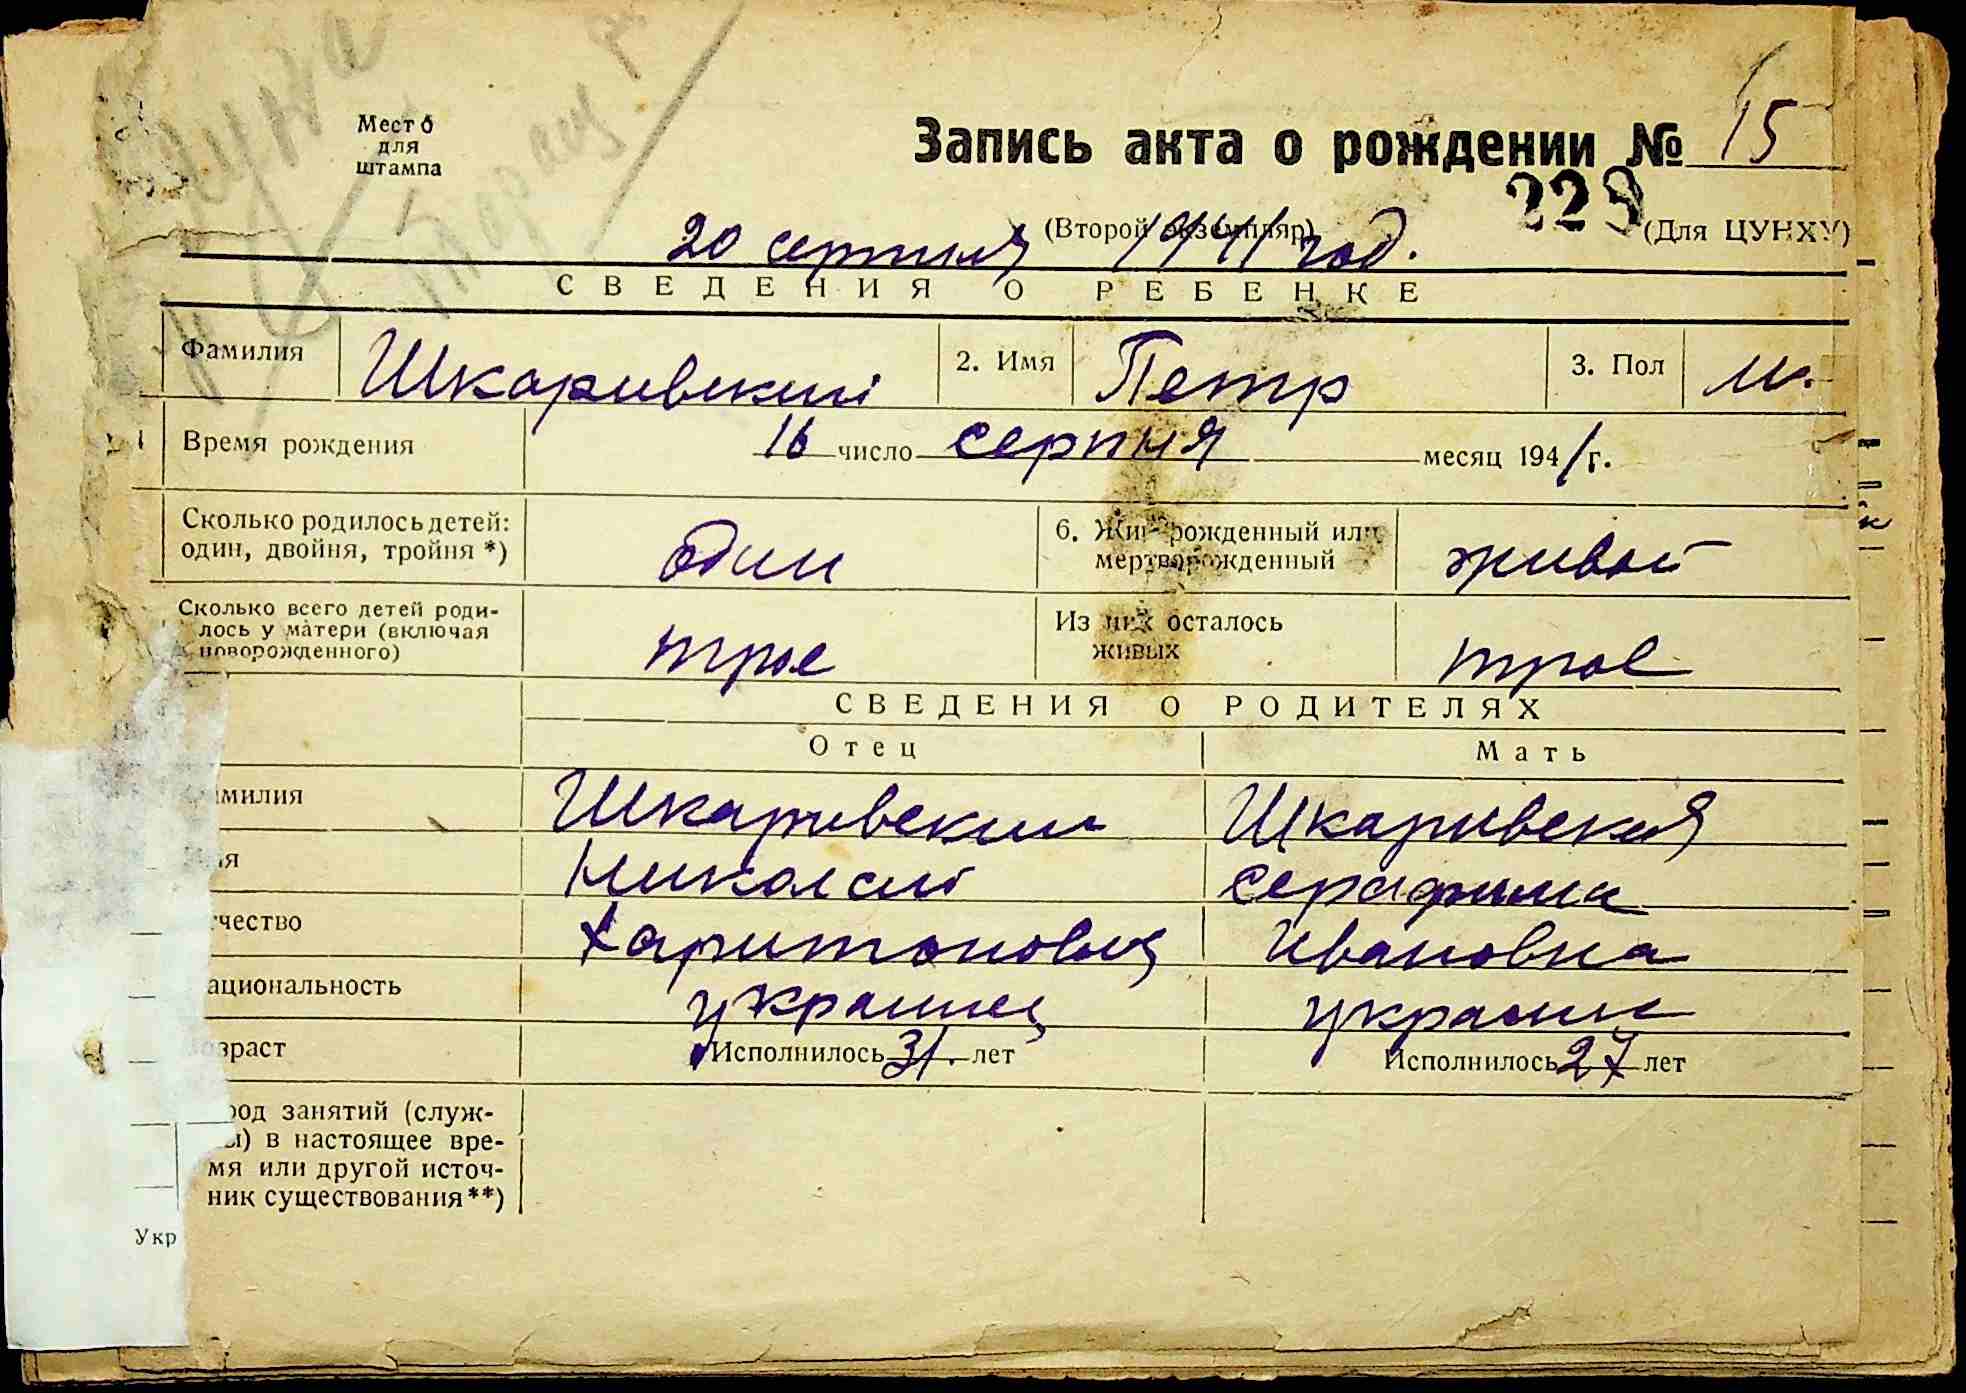 Место
для
штампа
Запись акта о рождении № 15
229
(Второй экземпляр)
(Для ЦУНХУ)
20 серпня 1941 год.
СВЕДЕНИЯ О РЕБЕНКЕ
Фамилия Шкаривский 2. Имя Петр 3. Пол м.
Время рождения 16 число серпня месяц 1941 г.
Сколько родилось детей:
один, двойня, тройня *) один
6. Живорожденный или
мертворожденный живой
Сколько всего детей роди-
лось у матери (включая
новорожденного) трое
Из них осталось
живых трое
СВЕДЕНИЯ О РОДИТЕЛЯХ
Отец Мать
амилия Шкаривский Шкаривская
мя Николай Серафима
тчество Харитонович Ивановна
ациональность украинец украин
озраст Исполнилось 31 лет Исполнилось 27 лет
род занятий (служ-
ы) в настоящее вре-
мя или другой источ-
ник существования **)
Укр